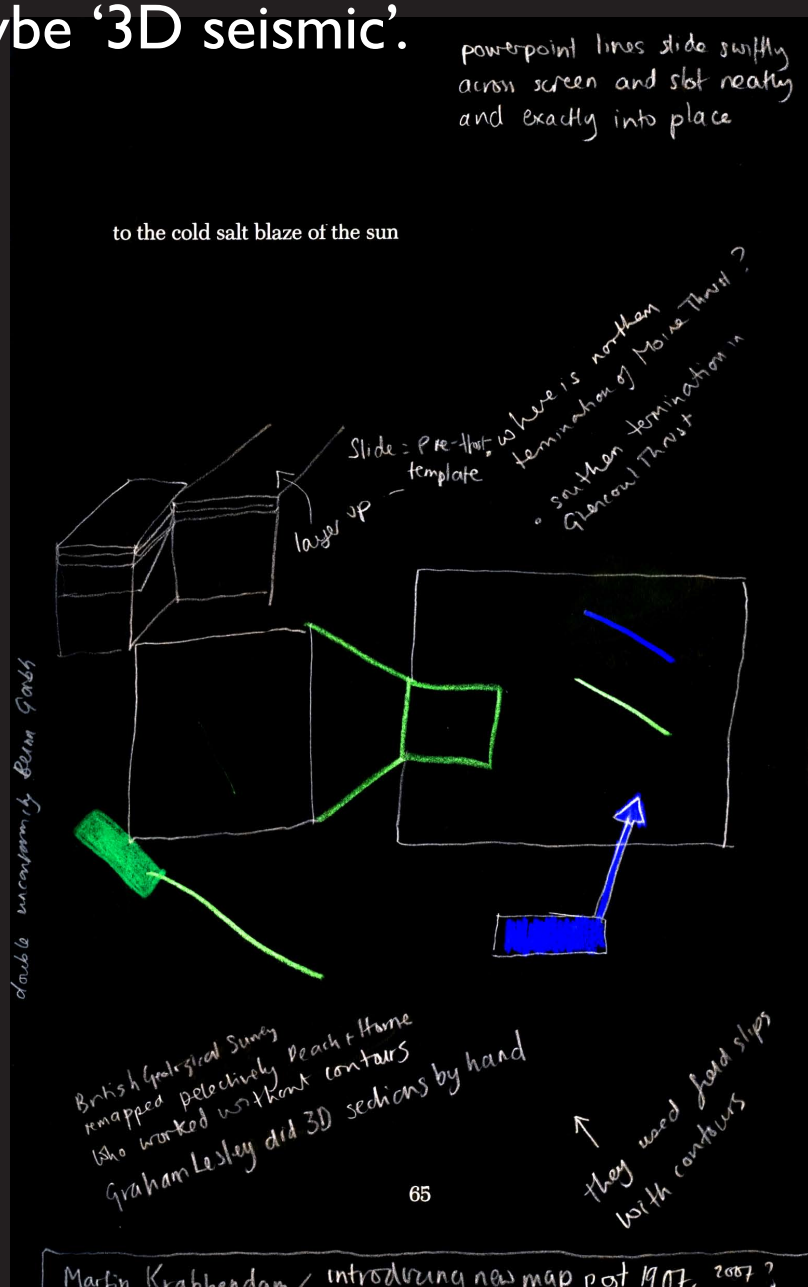 be '3D seismic'.
powerpoint lines slide swiftly
across screen and slot neatly
and exactly into place
to the cold salt blaze of the sun
where is northern
termination of Moine Thrust?
Slide =
template
layer up –
• southern termination in
Thrust
double unconformity Beinn Garbh
British Geological Survey
remapped selectively Peach + Horne
who worked without contours
Graham Lesley did 3D sections by hand
they used field slips
with contours
65
Martin Krabbendam / introducing new map post 1907, 2007?